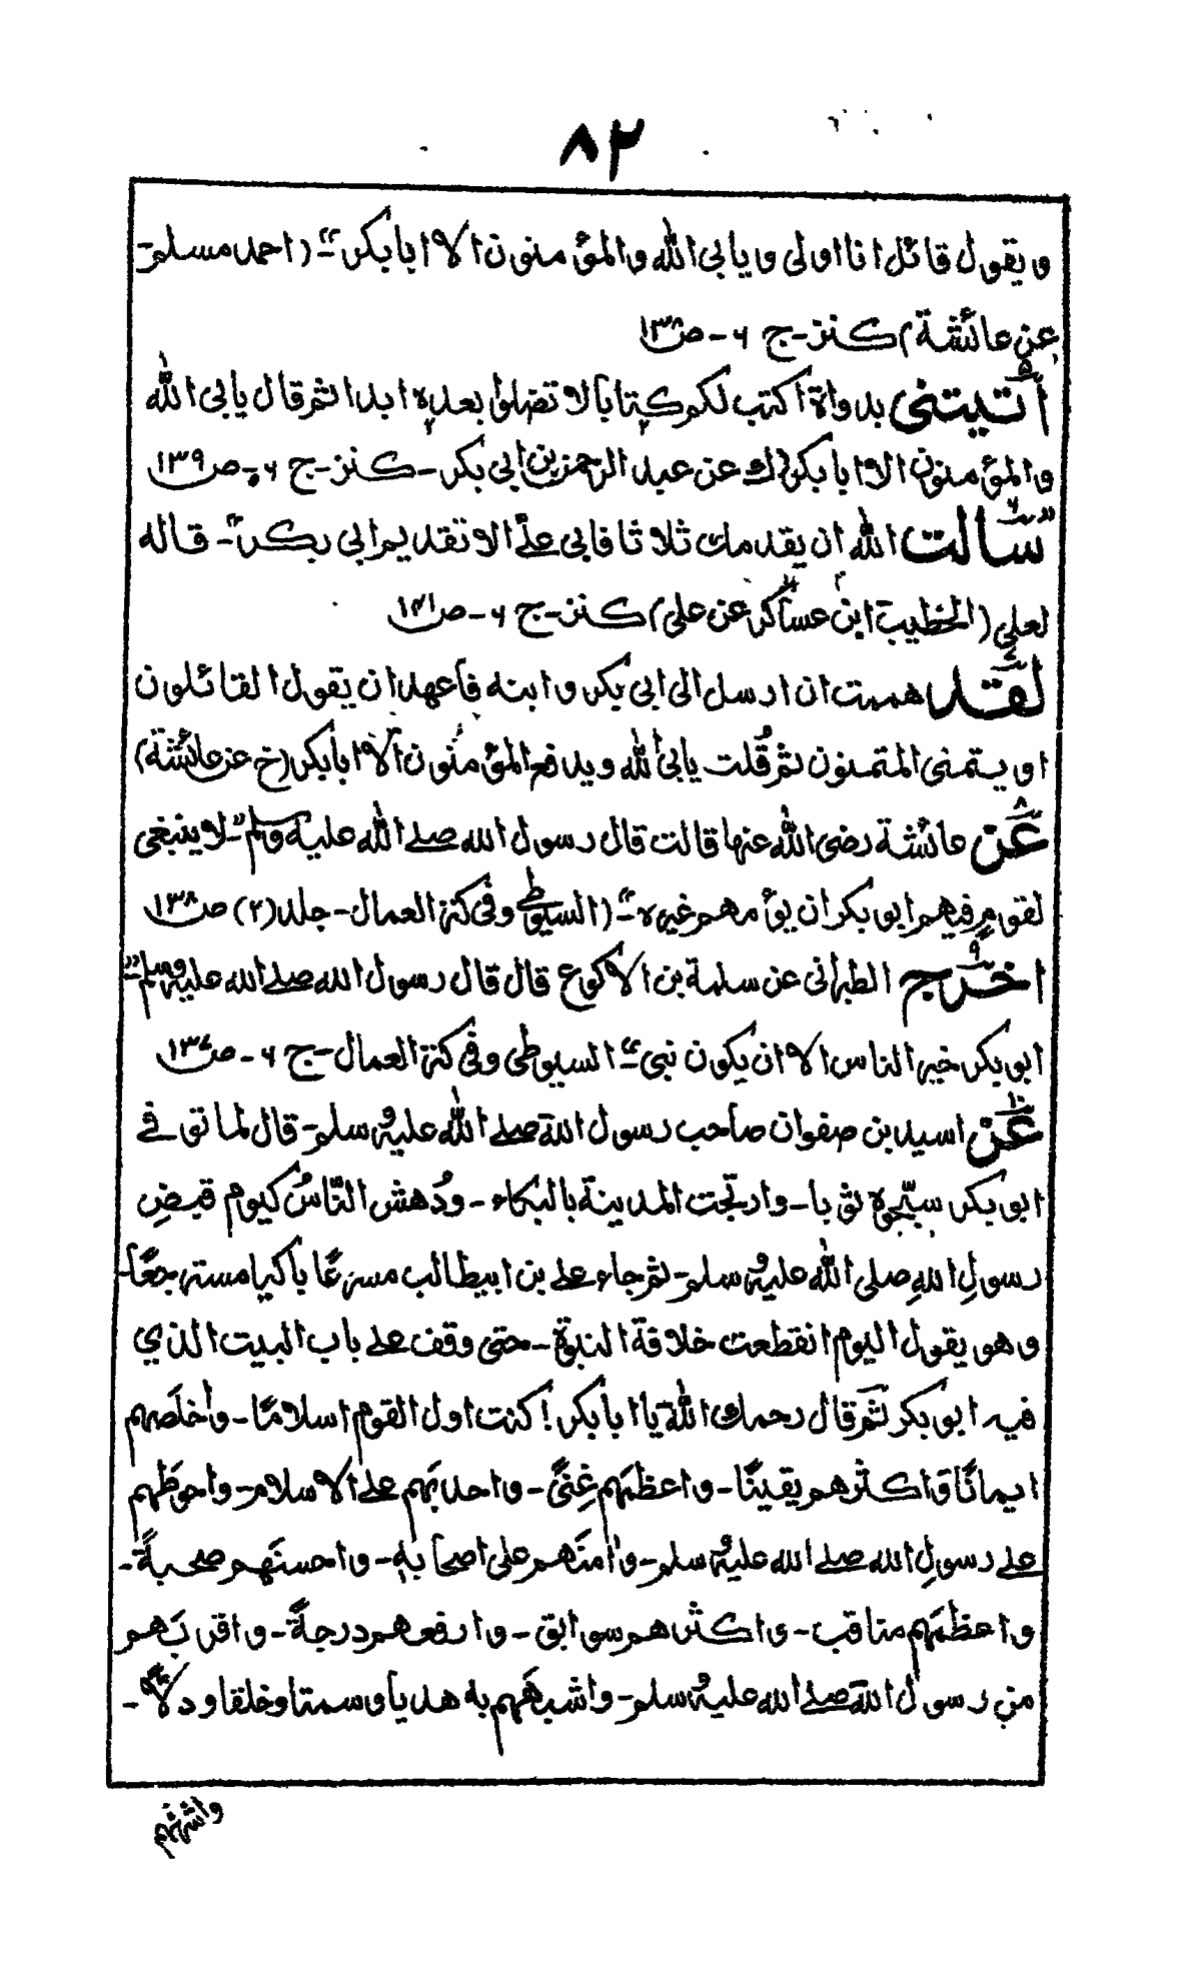 ٨٢
ويقول قائل انا اولى ويابى الله والمؤمنون الا ابا بكر" - (احمد مسلم -
عن عائشة) كنز - ج ٦ - ص ١٣٨
٥ اتيتنى بدواة اكتب لكم كتابا لا تضلوا بعده ابدا ثم قال يابى الله
والمؤمنون الا ابا بكر (ك عن عبد الرحمن بن ابى بكر - كنز - ج ٦ - ص ١٣٩
٦ "سالت الله ان يقدمك ثلاثا فابى علّى الا تقديم ابى بكر" - قاله
لعلى (الخطيب ابن عساكر عن على) كنز - ج ٦ - ص ١٤١
٧ لقد هممت ان ارسل الى ابى بكر وابنه فاعهد ان يقول القائلون
او يتمنى المتمنون ثم قُلت يابى الله ويدفع المؤمنون الا ابا بكر (خ عن عائشة)
٨ عَن عائشة رضى الله عنها قالت قال رسول الله صلے الله عليه وسلم" - لا ينبغى
لقوم فيهم ابو بكر ان يؤمهم غيره" - (السيوطى وفى كنز العمال - جلد (٦) ص ١٣٨
٩ اخرج الطبرانى عن سلمة بن الاكوع قال قال رسول الله صلے الله عليه وسلم"
ابو بكر خير الناس الا ان يكون نبى" - السيوطى وفى كنز العمال - ج ٦ - ص ١٣٧
١٠ عَن اسيد بن صفوان صاحب رسول اللهَ صلے الله عليه وسلم - قال لما توفے
ابو بكر سجّوه ثوبا - وارتجت المدينة بالبكاء - ودُهش النَّاسُ كيوم قبضِ
رسولِ اللهِ صلى الله عليه وسلم - ثم جاء علے بن ابيطالب مسرعًا باكيا مسترجعًا -
وهو يقول اليوم انقطعت خلافة النبوة - حتى وقف علے باب البيت الذي
فيه ابو بكر ثم قال رحمك اللهَ يا ابا بكر! كنت اول القوم اسلامًا - واخلَصهم
ايمانًا واكثرهم يقينًا - واعظمَهم غِنىً - واحدبَهم علے الاسلام - واحوطَهم
علے رسولِ الله صلے الله عليه وسلم - وامنَهم على اصحابهٖ - واحسنَهم صحبةً -
واعظمَهم مناقب - واكثرهم سوابق - وارفعهم درجةً - واقربَهم
من رسول اللهَ صلے الله عليه وسلم - واشبهَهم به هديا وسمتا وخلقا ودلًّا -
واشرفهم